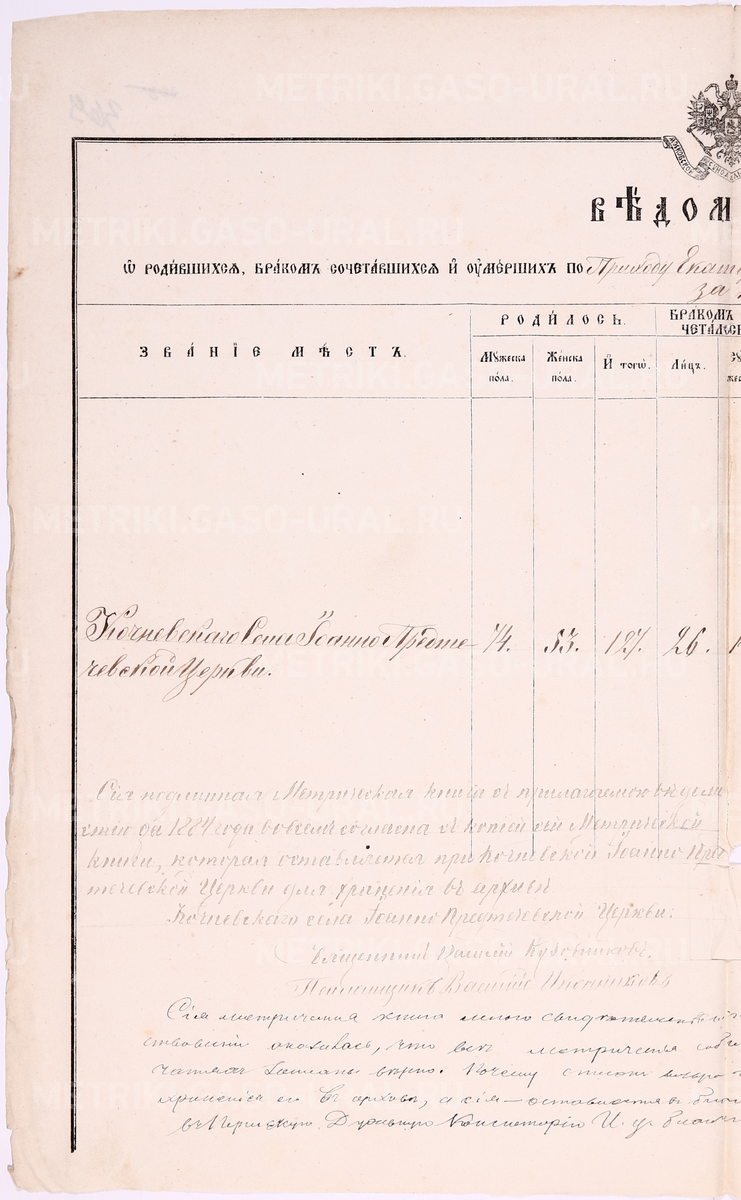 METRIKI.GASO-URAL.RU
ВѢДОМ
Ѡ РОДИ́ВШИХСЯ, БРА́КОМЪ СОЧЕТА́ВШИХСЯ И҆ ОУ҆МЕ́РШИХЪ ПО Приходу Екат
за
ЗВА́НІЕ МѢ́СТЪ.
РОДИ́ЛОСЬ.
БРА́КОМЪ
ЧЕТА́ЛОСЬ
Мꙋ́жеска по́ла.
Же́нска по́ла.
И҆тогѡ̀.
Ли́цъ.
Кочневскаго Села Іоанно Предте-
чевской Церкви.
74.
53.
127.
26.
1
Сія подлинная Метрическая книга съ прилагаемою вѣдомо
стію за 1884 года во всемъ согласна съ копіей сей Метрической
книги, которая оставляется при Кочневской Іоанно Пред
течевской Церкви для храненія въ архивѣ
Кочневскаго села Іоанно Предтечевской Церкви:
Священникъ Василій
Псаломщикъ Василій
Сія метрическая книга мною
ствовании оказалась, что всѣ метрическія
вѣрно. Почему
храненіе въ архивъ, а сія - оставляется
въ Пермскую Духовную Консисторію И. д. благоч